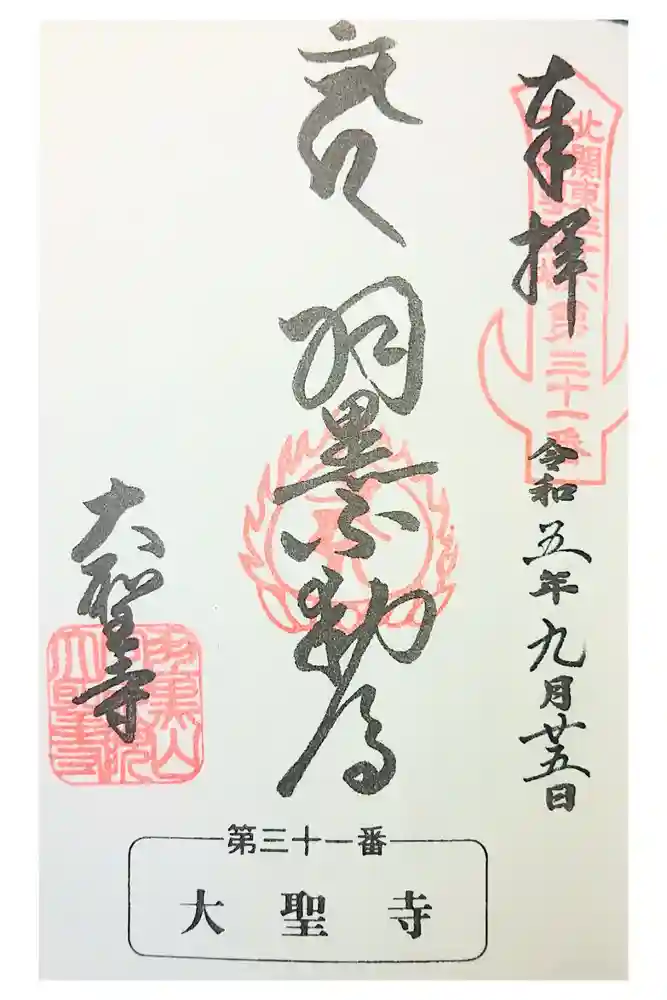 奉拝
北関東三十六
第三十一番
令和五年九月廿五日
羽黒不動尊
大聖寺
第三十一番
大聖寺